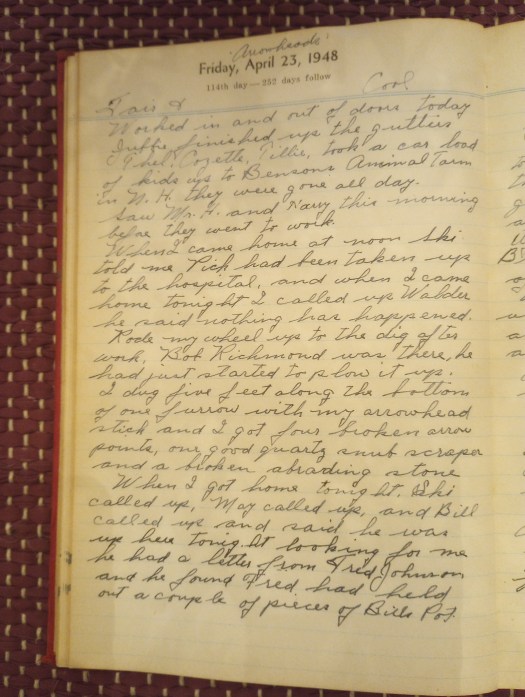 "Arrowheads"
Friday, April 23, 1948
114th day — 252 days follow
Fair & Cool
Worked in and out of doors today
finished up the gutters
Ethel, Cozette, Tillie, took a car load
of kids up to Bensons Animal Farm
in N. H. they were gone all day.
Saw Mr. H. and this morning
before they went to work.
When I came home at noon Ski
told me Pick had been taken up
to the hospital, and when I came
home tonight I called up Walder
he said nothing has happened.
Rode my wheel up to the dig after
work, Bob Richmond was there, he
had just started to plow it up.
I dug five feet along the bottom
of one furrow with my arrowhead
stick and I got four broken arrow
points, one good quartz snub scraper
and a broken abrading stone
When I got home tonight, Ski
called up, May called up, and Bill
called up and said he was
up here tonight looking for me
he had a letter from Fred Johnson
and he found Fred had held
out a couple of pieces of Bills Pot.